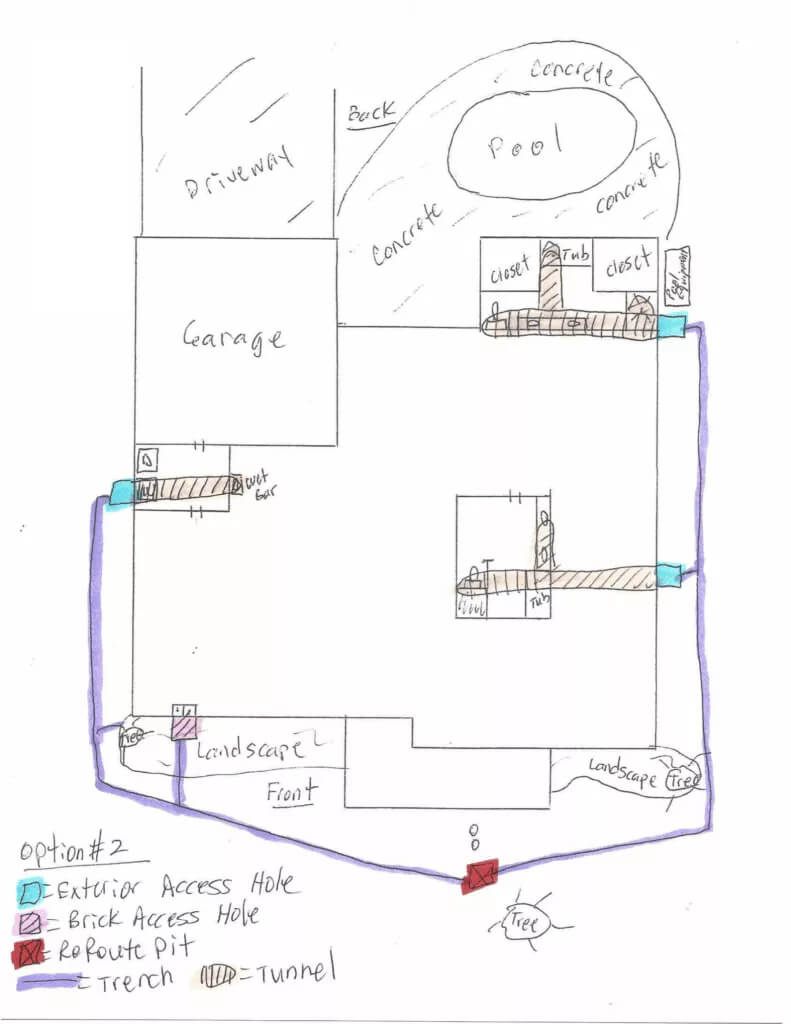 Concrete
Back
Pool
Driveway
Concrete
Concrete
closet
Tub
closet
Pool
Equipment
Garage
D
wet
bar
T
Tub
Tree
Landscape
Landscape
Tree
Front
Option #2
= Exterior Access Hole
= Brick Access Hole
= ReRoute Pit
= Trench
= Tunnel
Tree